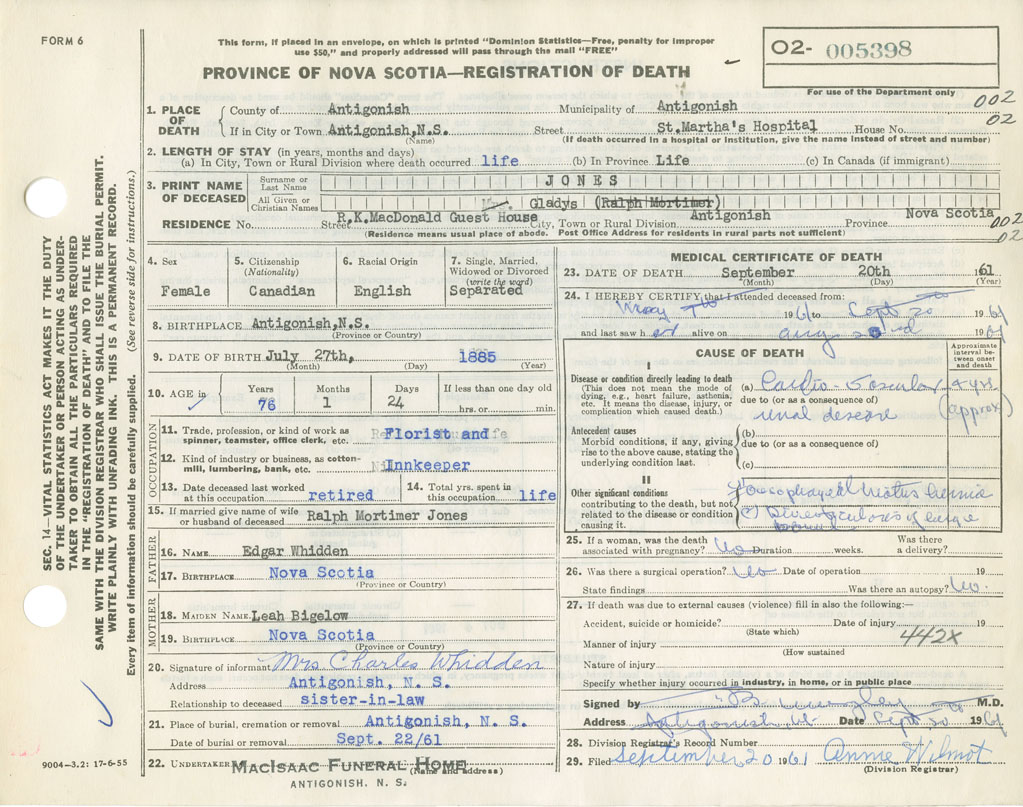 FORM 6
This form, if placed in an envelope, on which is printed "Dominion Statistics—Free, penalty for improper
use $50," and properly addressed will pass through the mail "FREE"
PROVINCE OF NOVA SCOTIA—REGISTRATION OF DEATH
02- 005398
For use of the Department only
002
02
1. PLACE OF DEATH
County of Antigonish Municipality of Antigonish
If in City or Town Antigonish,N.S. Street St.Martha's Hospital House No.
(Name) (If death occurred in a hospital or institution, give the name instead of street and number)
2. LENGTH OF STAY (in years, months and days)
(a) In City, Town or Rural Division where death occurred life (b) In Province Life (c) In Canada (if immigrant)
3. PRINT NAME OF DECEASED
Surname or Last Name JONES
All Given or Christian Names Gladys (Ralph Mortimer)
RESIDENCE No. Street R.K.MacDonald Guest House City, Town or Rural Division Antigonish Province Nova Scotia
002
02
(Residence means usual place of abode. Post Office Address for residents in rural parts not sufficient)
4. Sex Female
5. Citizenship (Nationality) Canadian
6. Racial Origin English
7. Single, Married, Widowed or Divorced (write the word) Separated
8. BIRTHPLACE Antigonish,N.S.
(Province or Country)
9. DATE OF BIRTH July 27th, 1885
(Month) (Day) (Year)
10. AGE in Years 76 Months 1 Days 24 If less than one day old hrs. or min.
OCCUPATION
11. Trade, profession, or kind of work as spinner, teamster, office clerk, etc. Florist and
12. Kind of industry or business, as cotton-mill, lumbering, bank, etc. Innkeeper
13. Date deceased last worked at this occupation retired
14. Total yrs. spent in this occupation life
15. If married give name of wife or husband of deceased Ralph Mortimer Jones
FATHER
16. NAME Edgar Whidden
17. BIRTHPLACE Nova Scotia
(Province or Country)
MOTHER
18. MAIDEN NAME Leah Bigelow
19. BIRTHPLACE Nova Scotia
(Province or Country)
20. Signature of informant Mrs Charles Whidden
Address Antigonish, N. S.
Relationship to deceased sister-in-law
21. Place of burial, cremation or removal Antigonish, N. S.
Date of burial or removal Sept. 22/61
22. UNDERTAKER MACISAAC FUNERAL HOME
(Name and address)
ANTIGONISH, N. S.
MEDICAL CERTIFICATE OF DEATH
23. DATE OF DEATH September 20th 1961
(Month) (Day) (Year)
24. I HEREBY CERTIFY that I attended deceased from:
1961 to Sept 20 1961
and last saw h er alive on aug 1961
CAUSE OF DEATH
Approximate interval between onset and death
I
Disease or condition directly leading to death
(This does not mean the mode of dying, e.g., heart failure, asthenia, etc. It means the disease, injury, or complication which caused death.)
(a) Cardio-Vascular 4 yrs
due to (or as a consequence of) (approx)
renal desease
Antecedent causes
Morbid conditions, if any, giving rise to the above cause, stating the underlying condition last.
(b)
due to (or as a consequence of)
(c)
II
Other significant conditions contributing to the death, but not related to the disease or condition causing it.
oesophageal hiatus hernia
25. If a woman, was the death associated with pregnancy? No Duration weeks. Was there a delivery?
26. Was there a surgical operation? No Date of operation 19
State findings Was there an autopsy? No.
27. If death was due to external causes (violence) fill in also the following:—
Accident, suicide or homicide? Date of injury 19
(State which)
Manner of injury 442X
(How sustained
Nature of injury
Specify whether injury occurred in industry, in home, or in public place
Signed by M.D.
Address Antigonish Date Sept 20 1961
28. Division Registrar's Record Number
29. Filed September 20 1961 Annie Wilmot
(Division Registrar)
SEC. 14—VITAL STATISTICS ACT MAKES IT THE DUTY
OF THE UNDERTAKER OR PERSON ACTING AS UNDER-
TAKER TO OBTAIN ALL THE PARTICULARS REQUIRED
IN THE "REGISTRATION OF DEATH" AND TO FILE THE
SAME WITH THE DIVISION REGISTRAR WHO SHALL ISSUE THE BURIAL PERMIT.
WRITE PLAINLY WITH UNFADING INK. THIS IS A PERMANENT RECORD.
Every item of information should be carefully supplied. (See reverse side for instructions.)
9004-3.2: 17-6-55